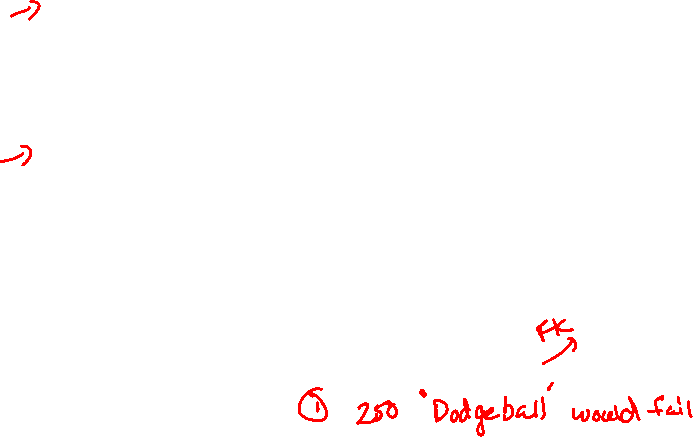 FK
① 250 'Dodgeball' would fail